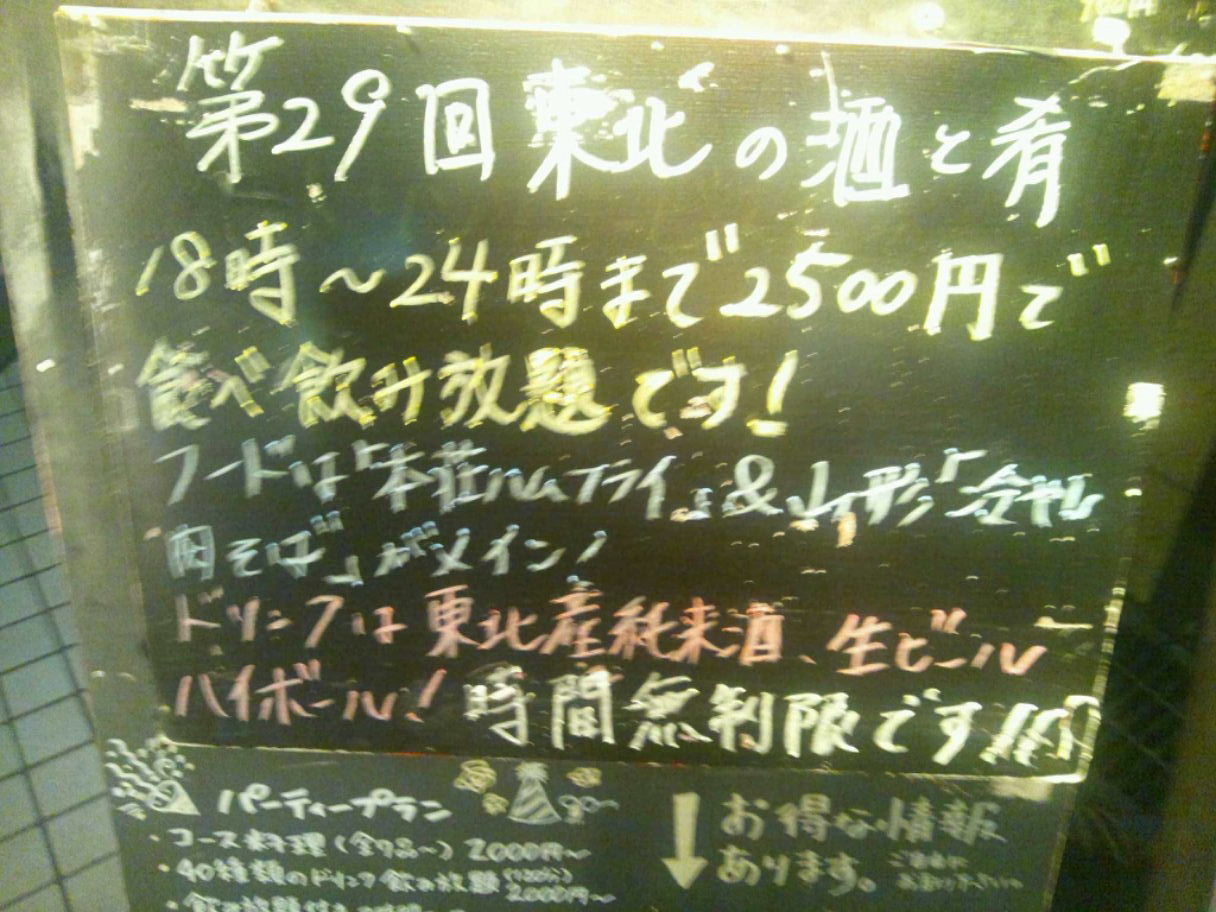 第29回東北の酒と肴
18時~24時まで2500円で
食べ飲み放題です!
フードは「本荘ハムフライ」&山形「冷やし
肉そば」がメイン!
ドリンクは東北産純米酒、生ビール
ハイボール!時間無制限です!!!
パーティープラン
・コース料理(全7品~)2000円~
・40種類のドリンク飲み放題(120分)2000円~
お得な情報
あります。